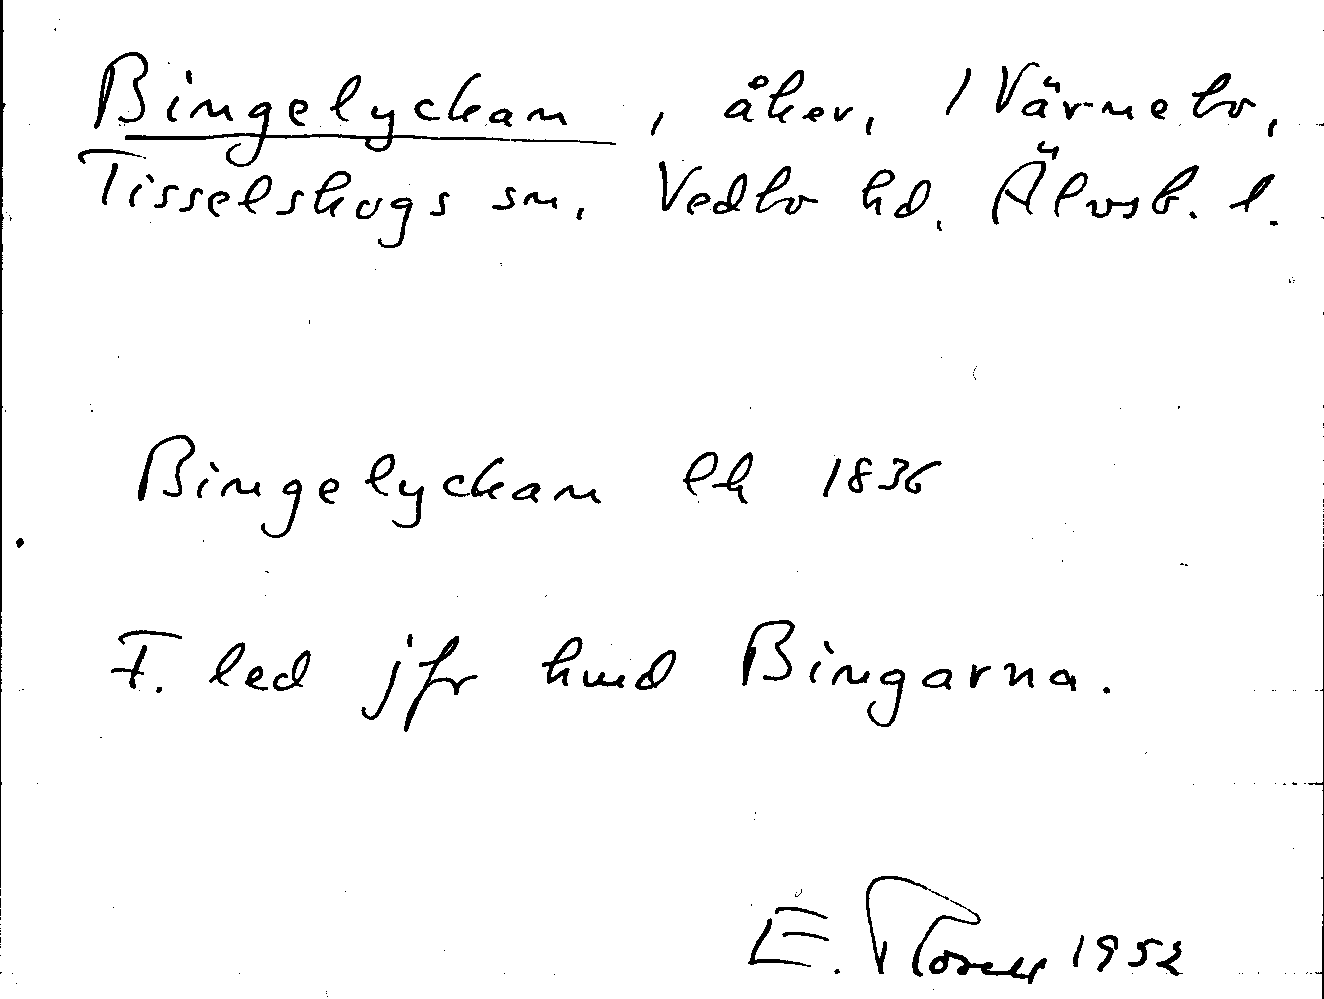 Bingelyckan, åker, 1 Värmebo,
Tisselskogs sn. Vedbo hd. Älvsb. l.
Bingelyckan lh 1836
F. led jfr hmd Bingarna.
E. 1952